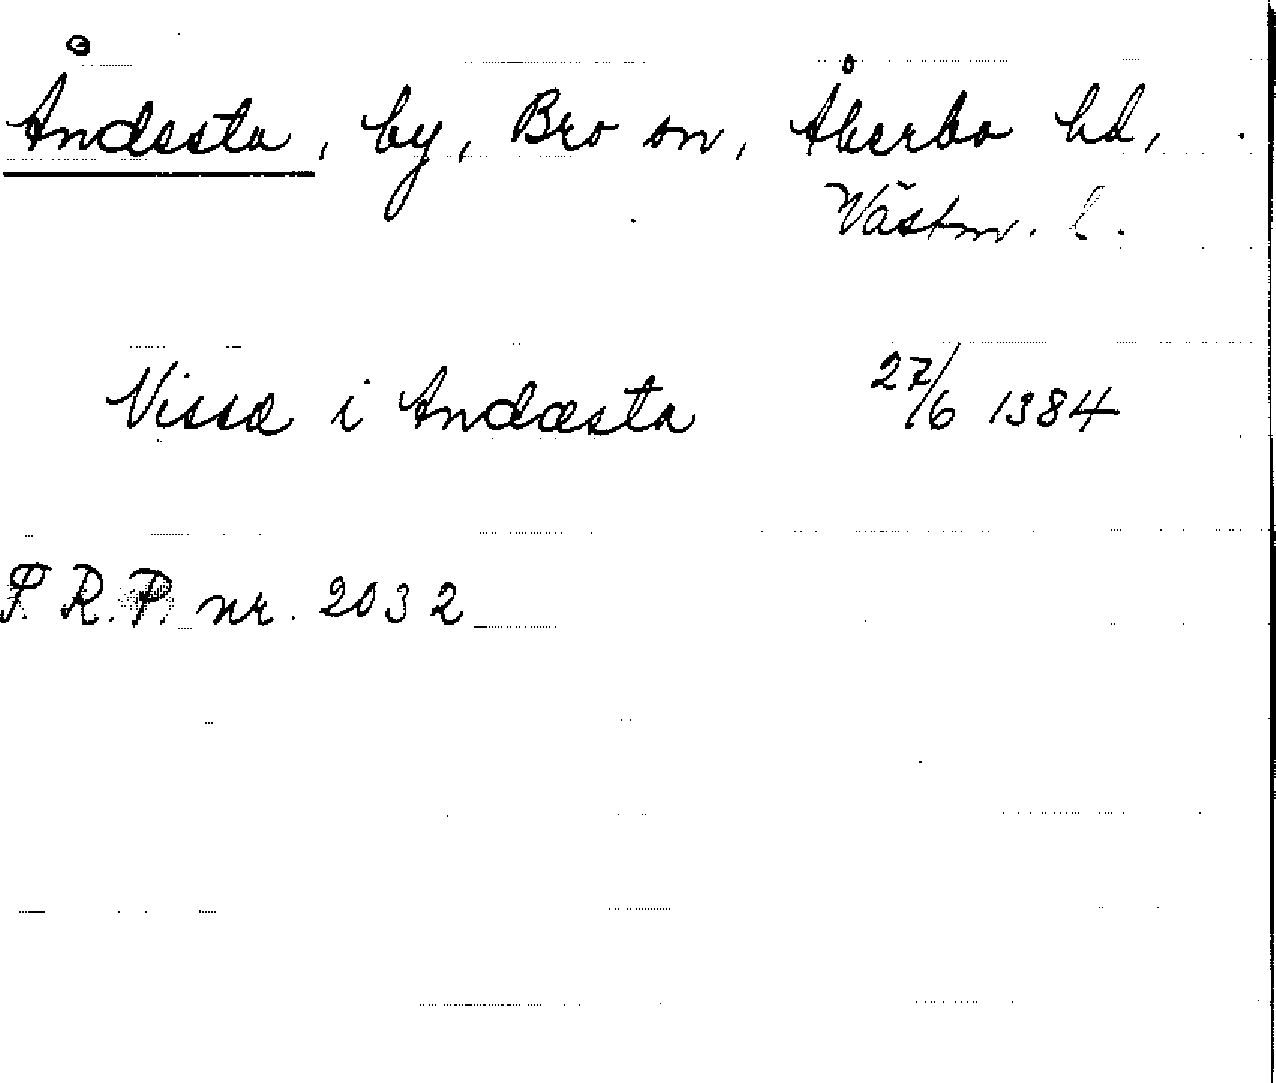 Åndesta, by, Bro sn, Åkerbo hd,
Västm. l.
Vissa i Andæsta 27/6 1384
S. R. P. nr. 2032